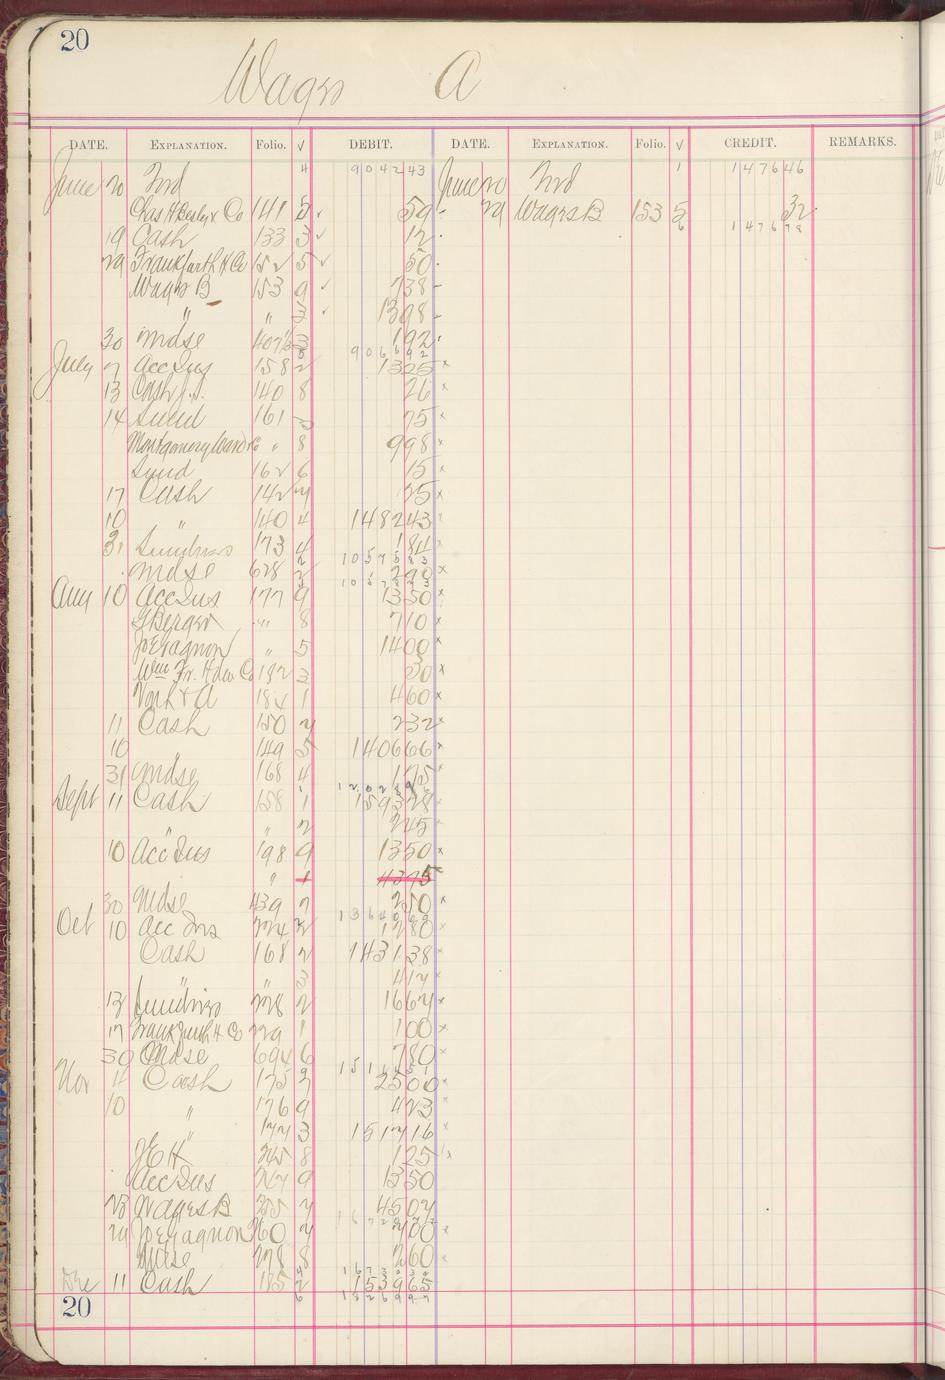 20
Wages A
DATE. EXPLANATION. Folio. √ DEBIT. DATE. EXPLANATION. Folio. √ CREDIT. REMARKS.
June 20 Frd 4 9042 43 June 20 Frd 1 1476 46
Chas H Besly & Co 141 5 50 29 Wages B 153 5 32
19 Cash 133 3 12 6 1476 78
29 Frankfurth H Co 152 5 50
Wages B 153 9 738
" " 3 1398
30 Mdse 3 192
9066 92
July 7 158 2 1325
13 Cash 140 8 26
14 161 75
Montgomery Ward & Co " 8 998
162 6 15
17 Cash 142 4 25
10 " 140 4 1482 43
31 Sundries 173 4 184
Mdse 628 2 290
Aug 10 177 9 1350
G Berger " 8 710
Jo E Gagnon " 5 1400
Wm Fr. Hdw Co 182 3 30
184 1 460
11 Cash 150 232
10 " 149 5 1406 66
31 Mdse 168 4 175
Sept 11 Cash 158 1 1593 28
" " 2 245
10 198 9 1350
" 1 4375
30 Mdse 439 2 250
13640 69
Oct 10 Acc Ins 224 1280
Cash 168 2 1431 38
" 3 417
13 Sundries 228 2 1664
17 Frankfurth H Co 229 1 100
30 Mdse 694 6 780
Nov 4 Cash 175 2500
10 " 176 9 423
" 177 3 1517 16
J E H 245 8 125
247 9 1350
28 Wages B 255 4504
29 Jo E Gagnon 260 400
Mdse 278 8 260
Dec 11 Cash 185 2 1539 65
20 6 18269 97